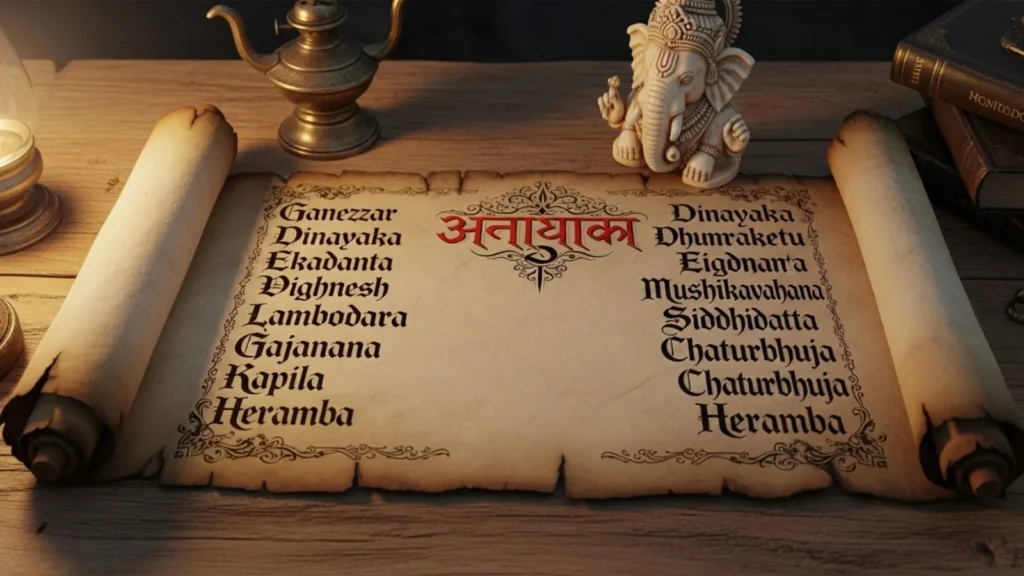 Ganezzar
Dinayaka
Ekadanta
Dighnesh
Lambodara
Gajanana
Kapila
Heramba
अनायाका
Dinayaka
Dhumraketu
Eigdnan'a
Mushikavahana
Siddhidatta
Chaturbhuja
Chaturbhuja
Heramba